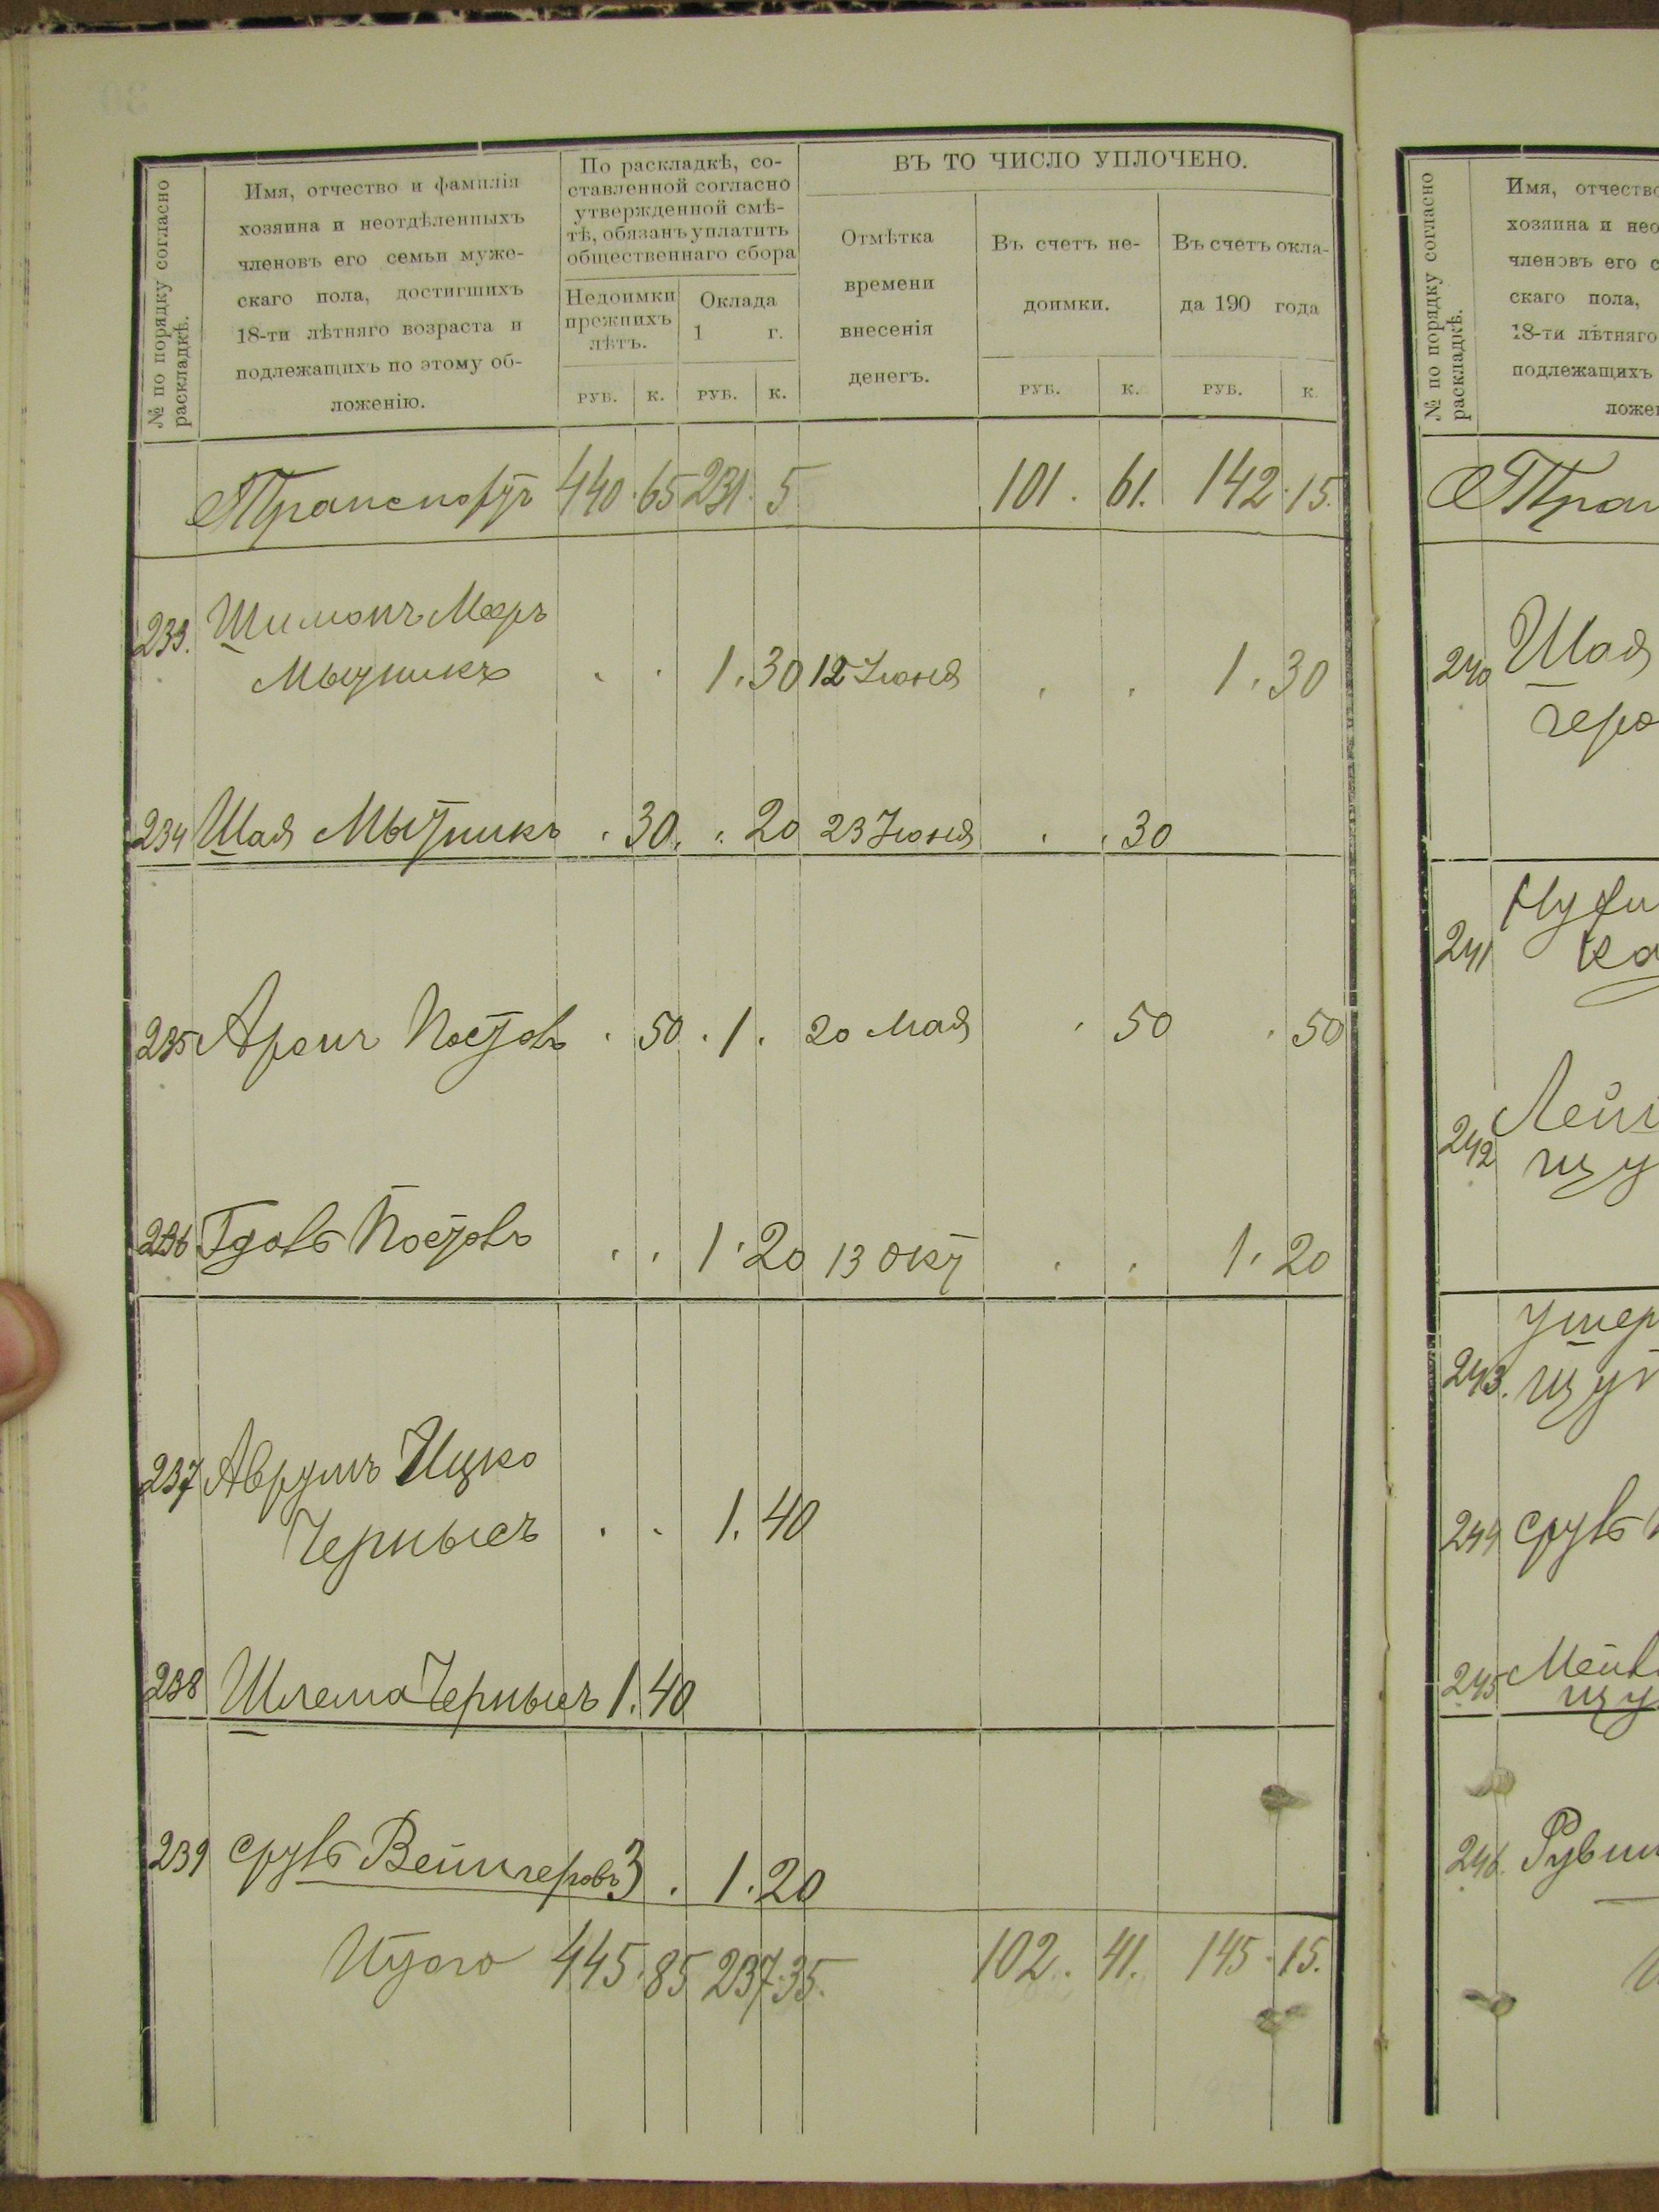 № по порядку согласно раскладкѣ.
Имя, отчество и фамилія
хозяина и неотдѣленныхъ
членовъ его семьи муже-
скаго пола, достигшихъ
18-ти лѣтняго возраста и
подлежащихъ по этому об-
ложенію.
По раскладкѣ, со-
ставленной согласно
утвержденной смѣ-
тѣ, обязанъ уплатить
общественнаго сбора
Недоимки
прежнихъ
лѣтъ.
Оклада
1 г.
РУБ. К. РУБ. К.
ВЪ ТО ЧИСЛО УПЛОЧЕНО.
Отмѣтка
времени
внесенія
денегъ.
Въ счетъ не-
доимки.
Въ счетъ окла-
да 190 года
РУБ. К. РУБ. К.
Транспортъ 440. 65 231. 5 101. 61. 142. 15.
233. Шимонъ Меръ
Мытникъ . . 1. 30 12 Іюня . . 1. 30
234 Шая Мытникъ . 30. . 20 23 Іюня . . 30
235 Аронъ Постовъ . 50 . 1. 20 Мая . 50 . 50
236 Гдовъ Постовъ . . 1. 20 13 Окт . . 1. 20
237 Аврумъ Ицко
Чернысъ . . 1. 40
238 Шлема Чернысъ 1. 40
239 Срувъ Вейнгеровъ 3 . 1. 20
Итого 445. 85 237. 35. 102. 41. 145. 15.
№ по порядку согласно раскладкѣ.
Имя, отчество
хозяина и нео
членовъ его с
скаго пола,
18-ти лѣтняго
подлежащихъ
ложе
Тран
240 Шая
геро
241
Ка
242 Лей
щу
243. Ушер
щу
244 Срувъ
245 Мей
щу
246. Руви